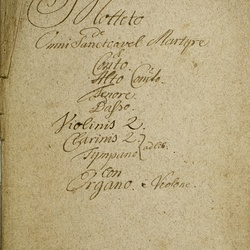 Motteto
de
Omni Sancto avel Martyre
a
Canto.
Alto Canto.
Tenore.
Basso.
Violinis 2.
Clarinis 2.
Tympano ad lib.
con
Organo. e Violone.